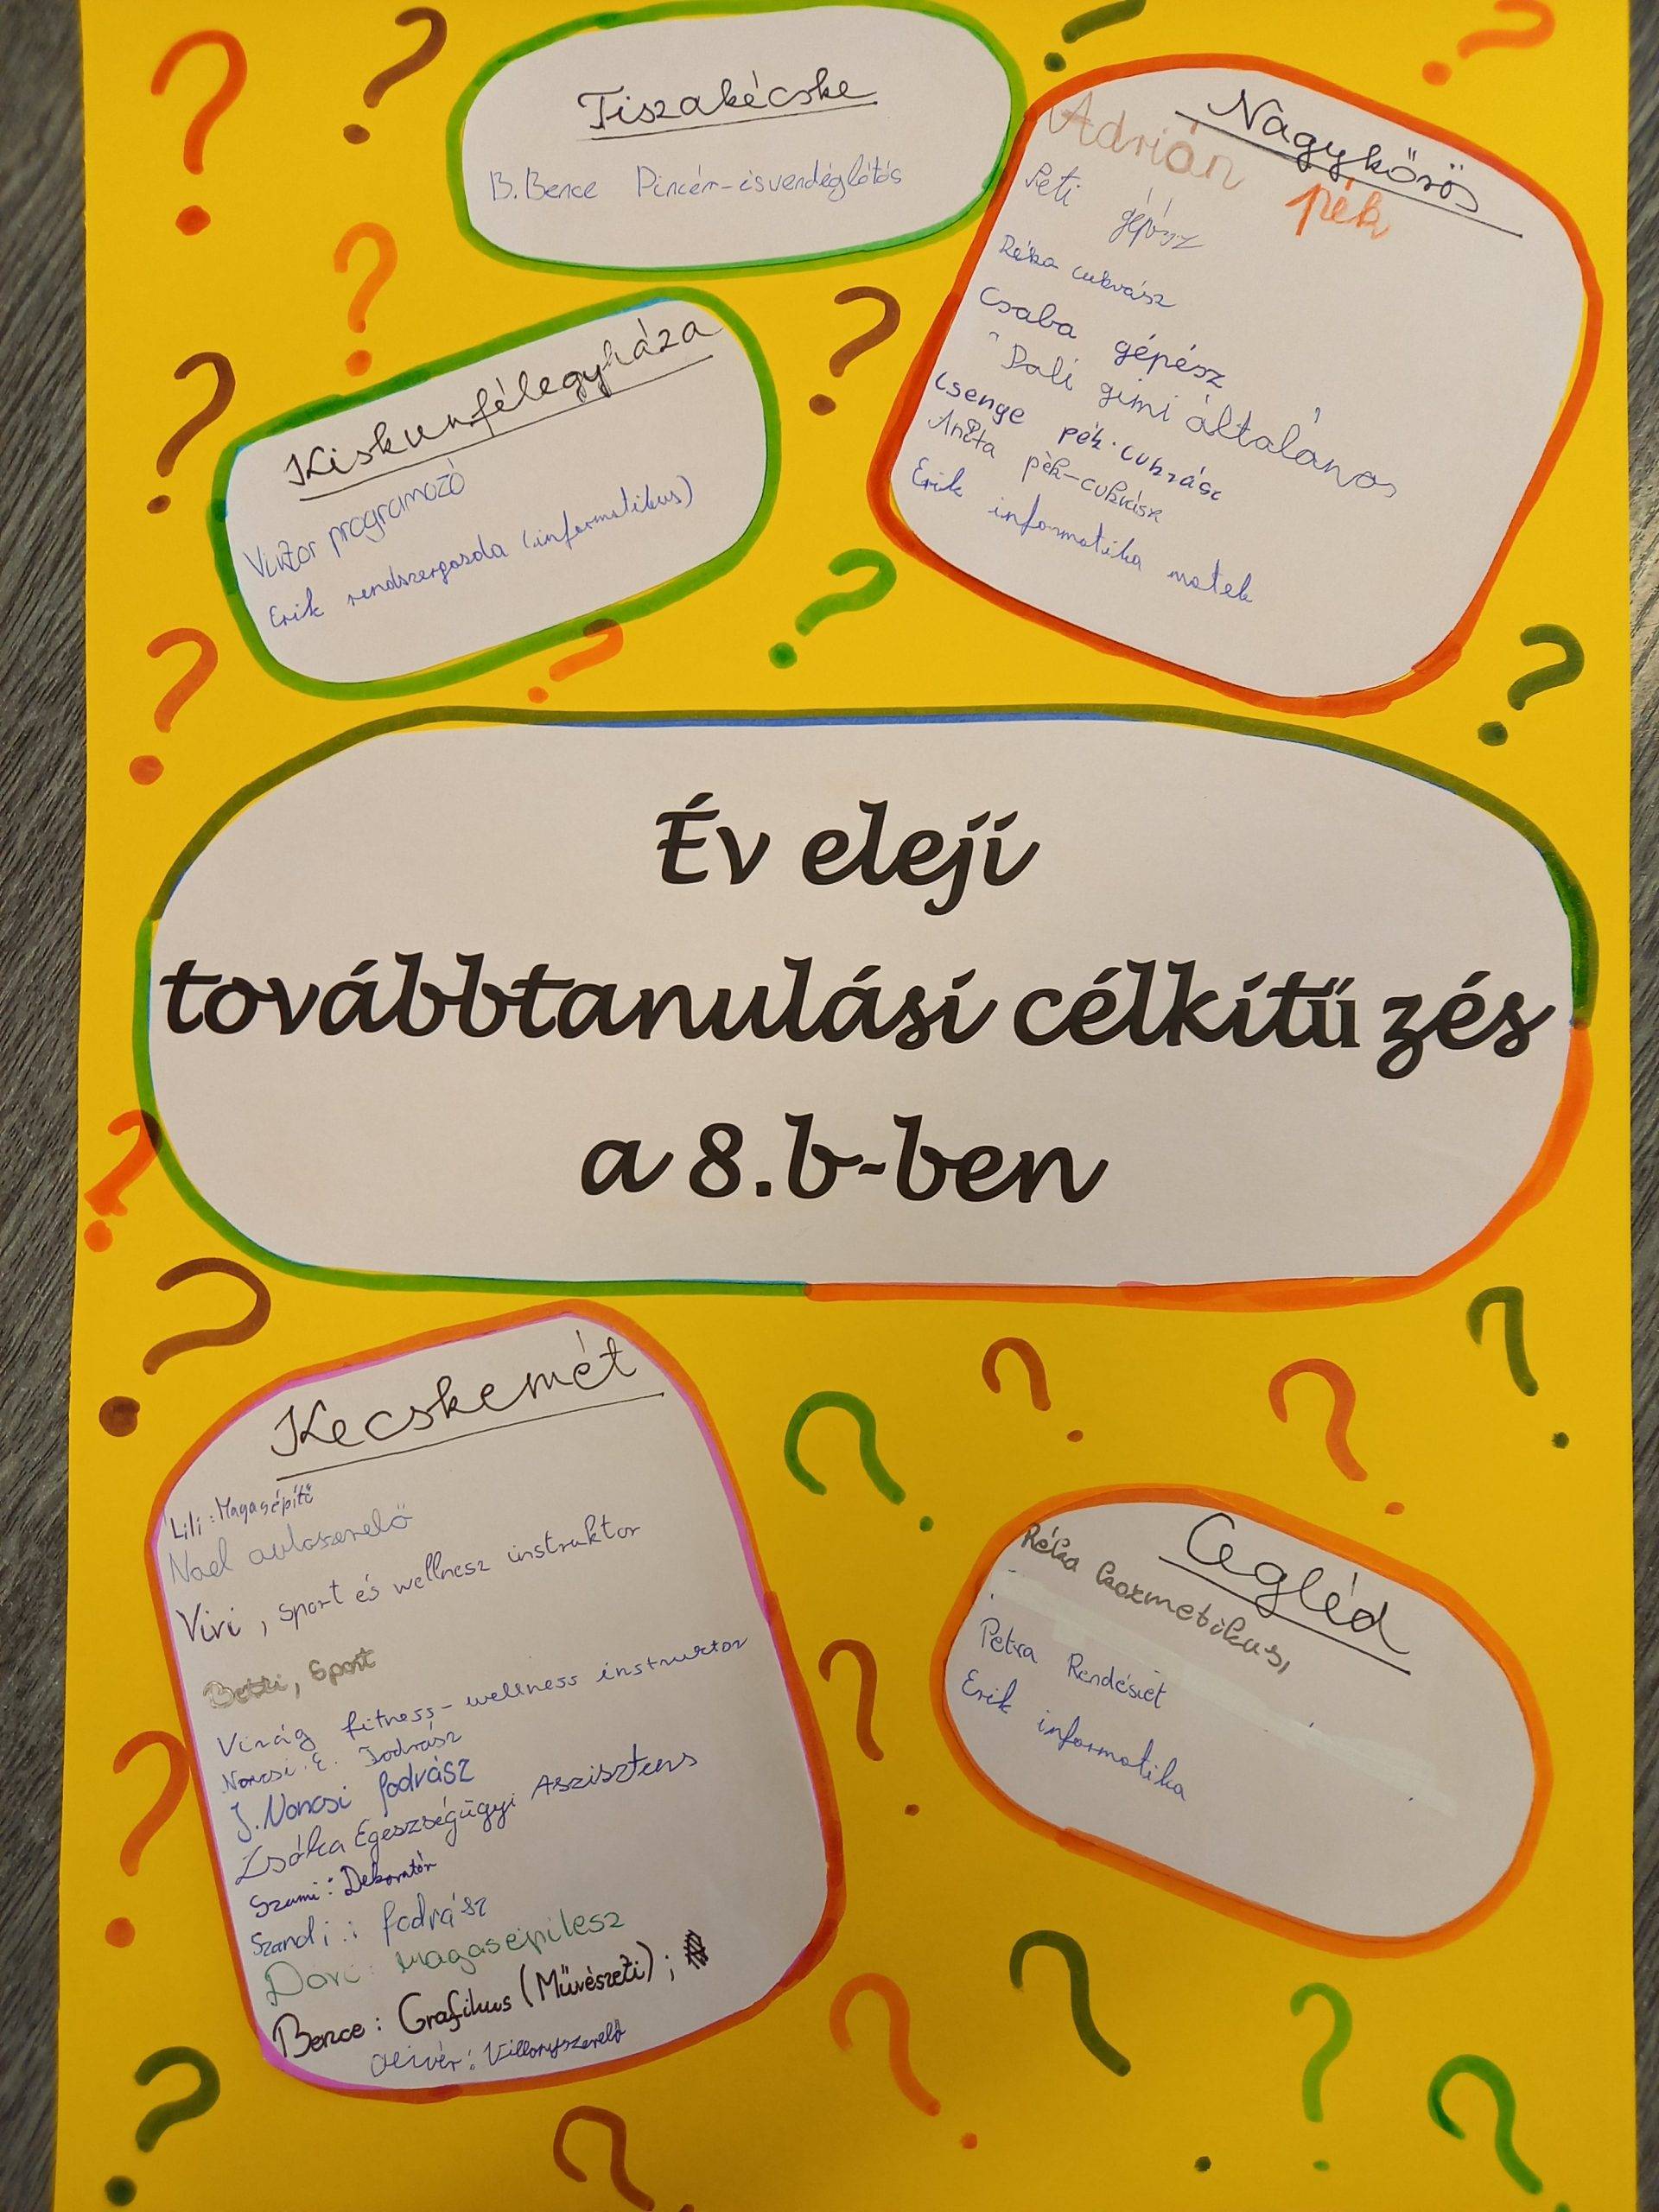 Tiszakécske
B. Bence Pincér- és vendéglátós
Nagykőrös
Adrián pék
Peti gépész
Réka cukrász
Csaba gépész
Dali gimi általános
Csenge pék-cukrász
Anita pék-cukrász
Erik informatika matek
Kiskunfélegyháza
Viktor programozó
Erik rendszergazda (informatikus)
Év eleji
továbbtanulási célkitűzés
a 8.b-ben
Kecskemét
Lili: Magasépítő
Noel autószerelő
Vivi, Sport és wellnesz instruktor
Betti, Sport
Virág fitness-wellness instruktor
Noncsi E. Fodrász
J. Noncsi fodrász
Zsóka Egészségügyi Aszisztens
Szami: Dekoratőr
Szandi: fodrász
Dóri: magasépítész
Bence: Grafikus (Művészeti);
Olivér: Villanyszerelő
Cegléd
Réka kozmetikus,
Petra Rendészet
Erik informatika